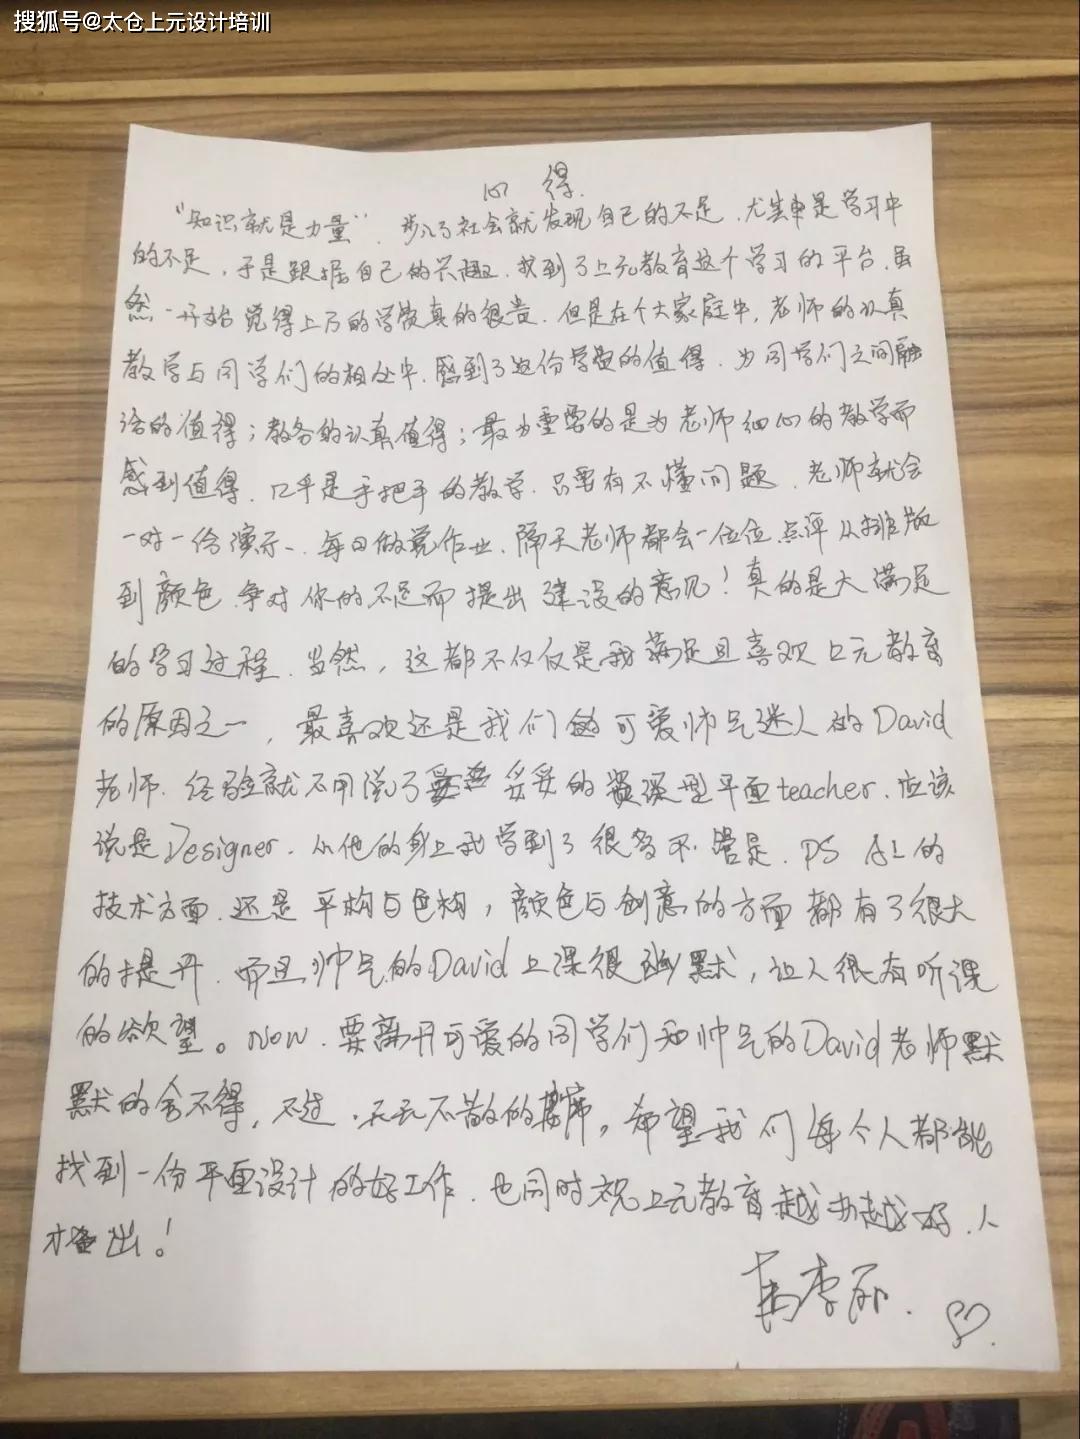 搜狐号@太仓上元设计培训
心 得.
“知识就是力量”. 步入了社会就发现自己的不足. 尤其是学习中
的不足, 于是跟据自己的兴趣. 找到了上元教育这个学习的平台. 虽
然一开始觉得上元的学费真的很贵. 但是在个大家庭中, 老师的认真
教学与同学们的相处中. 感到了这份学费的值得. 为同学们之间融
洽的值得; 教务的认真值得; 最为重要的是为老师细心的教学而
感到值得. 几乎是手把手的教学. 只要有不懂问题. 老师就会
一对一给演示. 每日做完作业. 隔天老师都会一位位点评从排版
到颜色. 争对你的不足而提出建设的意见! 真的是大满足
的学习过程. 当然, 这都不仅仅是我满足且喜欢上元教育
的原因之一, 最喜欢还是我们的可爱帅气迷人的David
老师. 经验就不用说了 妥妥的资深型平面teacher. 应该
说是Designer. 从他的身上我学到了很多不管是. PS AI的
技术方面. 还是平构与色构, 颜色与创意的方面都有了很大
的提升. 而且帅气的David上课很幽默, 让人很有听课
的欲望。Now. 要离开可爱的同学们和帅气的David老师默
默的舍不得, 不过. 天下不散的筵席。希望我们每个人都能
找到一份平面设计的好工作. 也同时祝上元教育越办越好. 人
才辈出!